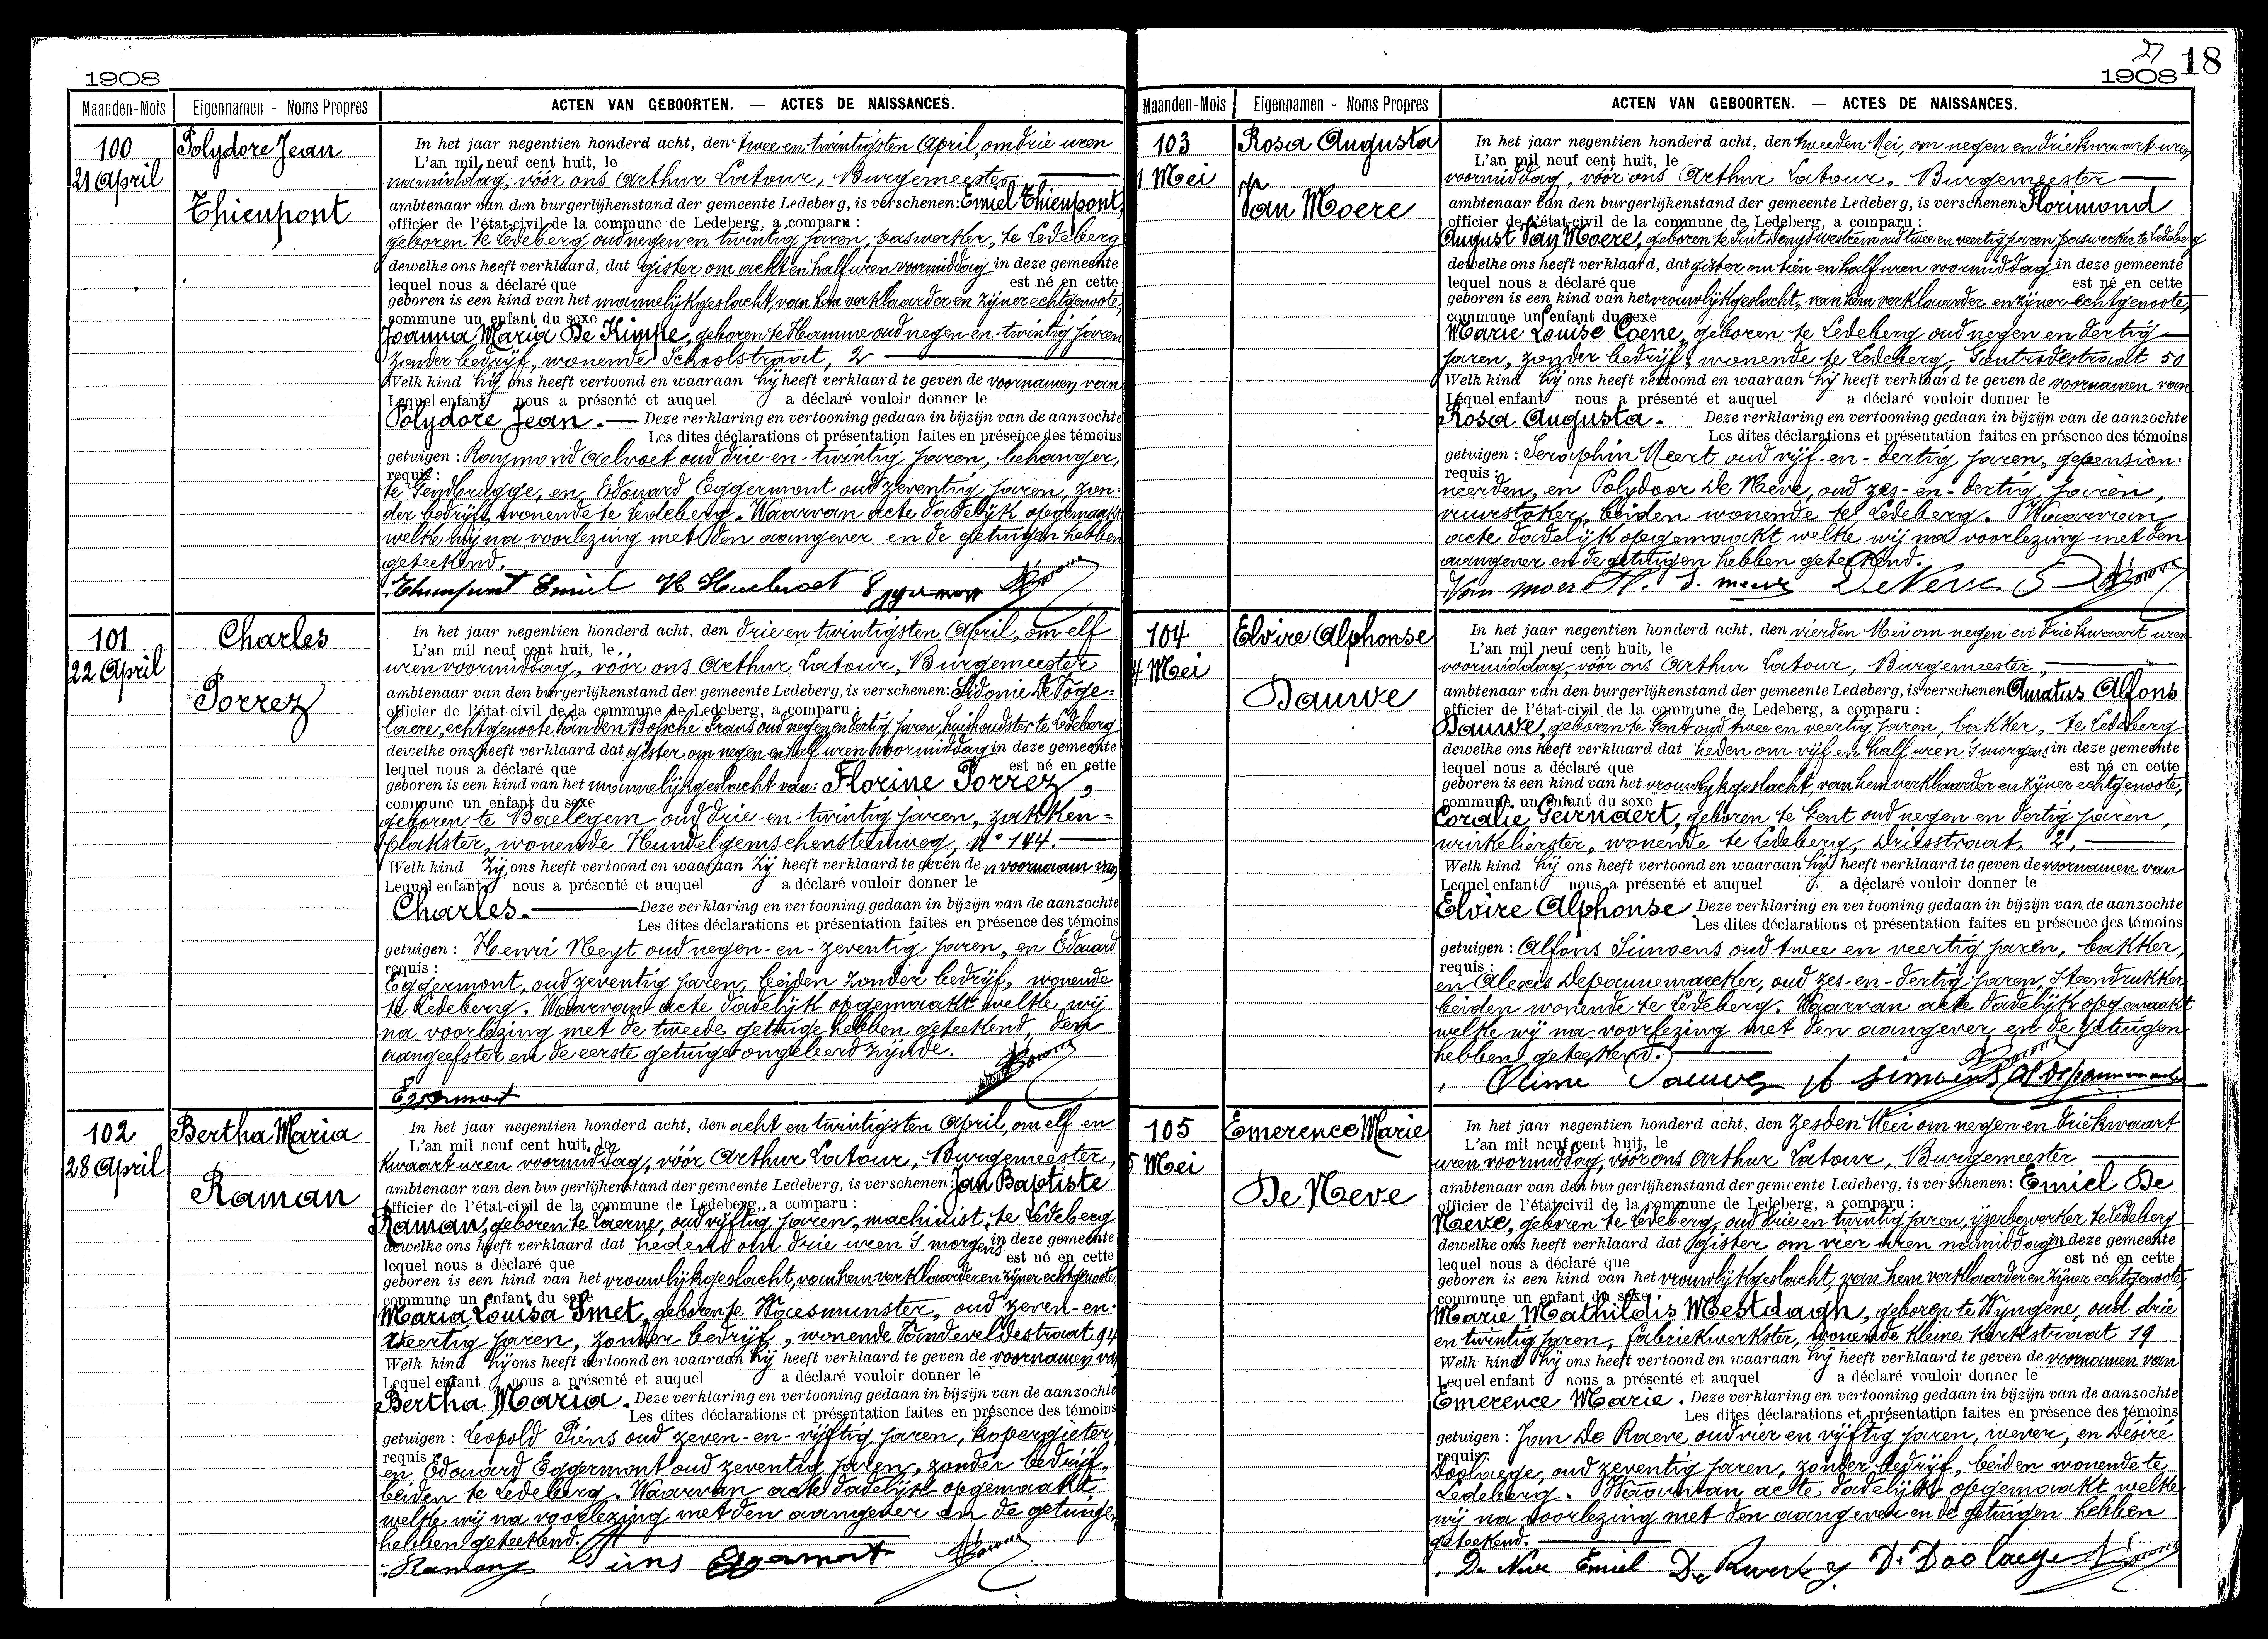 1908
Maanden-Mois Eigennamen - Noms Propres ACTEN VAN GEBOORTEN. — ACTES DE NAISSANCES.
100
21 April
Polydore Jean
Thienpont
In het jaar negentien honderd acht, den twee en twintigsten April, om drie uren
L'an mil neuf cent huit, le
namiddag, vóór ons Arthur Latour, Burgemeester
ambtenaar van den burgerlijkenstand der gemeente Ledeberg, is verschenen: Emiel Thienpont,
officier de l'état-civil de la commune de Ledeberg, a comparu :
geboren te Ledeberg oud negen en twintig jaren, paswerker, te Ledeberg
dewelke ons heeft verklaard, dat gister om acht en half uren voormiddag in deze gemeente
lequel nous a déclaré que est né en cette
geboren is een kind van het mannelijk geslacht, van hem verklaarder en zijner echtgenoote,
commune un enfant du sexe
Joanna Maria De Kimpe, geboren te Hamme oud negen-en-twintig jaren
zonder bedrijf, wonende Schoolstraat, 2
Welk kind hij ons heeft vertoond en waaraan hij heeft verklaard te geven de voornamen van
Lequel enfant nous a présenté et auquel a déclaré vouloir donner le
Polydore Jean. — Deze verklaring en vertooning gedaan in bijzijn van de aanzochte
Les dites déclarations et présentation faites en présence des témoins
getuigen : Raymond Aelvoet oud drie-en-twintig jaren, behanger,
requis :
te Gendbrugge, en Edouard Eggermont oud zeventig jaren, zon-
der bedrijf, wonende te Ledeberg. Waarvan acte dadelijk opgemaakt
welke wij na voorlezing met den aangever en de getuigen hebben
geteekend.
Thienpont Emiel Eggermont
101
22 April
Charles
Porrez
In het jaar negentien honderd acht, den drie en twintigsten April, om elf
L'an mil neuf cent huit, le
uren voormiddag, vóór ons Arthur Latour, Burgemeester
ambtenaar van den burgerlijkenstand der gemeente Ledeberg, is verschenen: Sidonie De Voge-
officier de l'état-civil de la commune de Ledeberg, a comparu :
laere, echtgenoote Van den Bossche Frans oud negen en dertig jaren, huishoudster te Ledeberg
dewelke ons heeft verklaard dat gister om negen en half uren voormiddag in deze gemeente
lequel nous a déclaré que est né en cette
geboren is een kind van het mannelijk geslacht van: Florine Porrez,
commune un enfant du sexe
geboren te Baelegem oud drie-en-twintig jaren, zakken-
plakster, wonende Hundelgemschensteenweg, No 144.
Welk kind zij ons heeft vertoond en waaraan zij heeft verklaard te geven de n voornaam van
Lequel enfant nous a présenté et auquel a déclaré vouloir donner le
Charles. — Deze verklaring en vertooning gedaan in bijzijn van de aanzochte
Les dites déclarations et présentation faites en présence des témoins
getuigen : Henri Neyt oud negen-en-zeventig jaren, en Edouard
requis :
Eggermont, oud zeventig jaren, beiden zonder bedrijf, wonende
te Ledeberg. Waarvan acte dadelijk opgemaakt welke wij
na voorlezing met de tweede getuige hebben geteekend, den
aangeefster en de eerste getuige ongeleerd zijnde.
Eggermont
102
28 April
Bertha Maria
Raman
In het jaar negentien honderd acht, den acht en twintigsten April, om elf en
L'an mil neuf cent huit, le
kwaart uren voormiddag, vóór Arthur Latour, Burgemeester,
ambtenaar van den burgerlijkenstand der gemeente Ledeberg, is verschenen: Jan Baptiste
officier de l'état-civil de la commune de Ledeberg, a comparu :
Raman, geboren te Laerne, oud vijftig jaren, machinist, te Ledeberg
dewelke ons heeft verklaard dat heden om drie uren 's morgens in deze gemeente
lequel nous a déclaré que est né en cette
geboren is een kind van het vrouwlijk geslacht, van hem verklaarder en zijner echtgenoote,
commune un enfant du sexe
Maria Louisa Smet, geboren te Waesmunster, oud zeven-en-
veertig jaren, zonder bedrijf, wonende Vandeveldestraat 94
Welk kind hij ons heeft vertoond en waaraan hij heeft verklaard te geven de voornamen van
Lequel enfant nous a présenté et auquel a déclaré vouloir donner le
Bertha Maria. Deze verklaring en vertooning gedaan in bijzijn van de aanzochte
Les dites déclarations et présentation faites en présence des témoins
getuigen : Leopold Piens oud zeven-en-vijftig jaren, kopergieter,
requis :
en Edouard Eggermont oud zeventig jaren, zonder bedrijf,
beiden te Ledeberg. Waarvan acte dadelijk opgemaakt
welke wij na voorlezing met den aangever en de getuigen
hebben geteekend.
Raman Piens Eggermont
27
1908 18
Maanden-Mois Eigennamen - Noms Propres ACTEN VAN GEBOORTEN. — ACTES DE NAISSANCES.
103
1 Mei
Rosa Augusta
Van Moere
In het jaar negentien honderd acht, den tweeden Mei, om negen en driekwaart uren
L'an mil neuf cent huit, le
voormiddag, vóór ons Arthur Latour, Burgemeester
ambtenaar van den burgerlijkenstand der gemeente Ledeberg, is verschenen: Florimond
officier de l'état-civil de la commune de Ledeberg, a comparu :
August Van Moere, geboren te Sint Denys Westrem oud twee en veertig jaren paswerker te Ledeberg
dewelke ons heeft verklaard, dat gister om tien en half uren voormiddag in deze gemeente
lequel nous a déclaré que est né en cette
geboren is een kind van het vrouwlijk geslacht, van hem verklaarder en zijner echtgenoote,
commune un enfant du sexe
Marie Louise Coene, geboren te Ledeberg oud negen en dertig
jaren, zonder bedrijf, wonende te Ledeberg, Gontrodestraat 50
Welk kind hij ons heeft vertoond en waaraan hij heeft verklaard te geven de voornamen van
Lequel enfant nous a présenté et auquel a déclaré vouloir donner le
Rosa Augusta. Deze verklaring en vertooning gedaan in bijzijn van de aanzochte
Les dites déclarations et présentation faites en présence des témoins
getuigen : Seraphin Meert oud vijf-en-dertig jaren, gepension-
requis :
neerden, en Polydoor De Neve, oud zes-en-dertig jaren,
vuurstoker, beiden wonende te Ledeberg. Waarvan
acte dadelijk opgemaakt welke wij na voorlezing met den
aangever en de getuigen hebben geteekend.
Van moere De Neve
104
4 Mei
Elvire Alphonse
Dauwe
In het jaar negentien honderd acht, den vierden Mei om negen en driekwaart uren
L'an mil neuf cent huit, le
voormiddag, vóór ons Arthur Latour, Burgemeester,
ambtenaar van den burgerlijkenstand der gemeente Ledeberg, is verschenen Amatus Alfons
officier de l'état-civil de la commune de Ledeberg, a comparu :
Dauwe, geboren te Gent oud twee en veertig jaren, bakker, te Ledeberg
dewelke ons heeft verklaard dat heden om vijf en half uren 's morgens in deze gemeente
lequel nous a déclaré que est né en cette
geboren is een kind van het vrouwlijk geslacht, van hem verklaarder en zijner echtgenoote,
commune un enfant du sexe
Coralie Geirnaert, geboren te Gent oud negen en dertig jaren,
winkelierster, wonende te Ledeberg, Driesstraat, 2,
Welk kind hij ons heeft vertoond en waaraan hij heeft verklaard te geven de voornamen van
Lequel enfant nous a présenté et auquel a déclaré vouloir donner le
Elvire Alphonse. Deze verklaring en vertooning gedaan in bijzijn van de aanzochte
Les dites déclarations et présentation faites en présence des témoins
getuigen : Alfons Simoens oud twee en veertig jaren, bakker,
requis :
en Alexis Depannemaecker, oud zes-en-dertig jaren, steendrukker
beiden wonende te Ledeberg. Waarvan acte dadelijk opgemaakt
welke wij na voorlezing met den aangever en de getuigen
hebben geteekend.
Dauwe Simoens
105
5 Mei
Emerence Marie
De Neve
In het jaar negentien honderd acht, den zesden Mei om negen en driekwaart
L'an mil neuf cent huit, le
uren voormiddag, vóór ons Arthur Latour, Burgemeester
ambtenaar van den burgerlijkenstand der gemeente Ledeberg, is verschenen: Emiel De
officier de l'état-civil de la commune de Ledeberg, a comparu :
Neve, geboren te Ledeberg, oud drie en twintig jaren, ijzerbewerker te Ledeberg
dewelke ons heeft verklaard dat gister om vier uren namiddag in deze gemeente
lequel nous a déclaré que est né en cette
geboren is een kind van het vrouwlijk geslacht, van hem verklaarder en zijner echtgenoote,
commune un enfant du sexe
Marie Mathildis Mestdagh, geboren te Wyngene, oud drie
en twintig jaren, fabriekwerkster, wonende kleine Kerkstraat 19
Welk kind hij ons heeft vertoond en waaraan hij heeft verklaard te geven de voornamen van
Lequel enfant nous a présenté et auquel a déclaré vouloir donner le
Emerence Marie. Deze verklaring en vertooning gedaan in bijzijn van de aanzochte
Les dites déclarations et présentation faites en présence des témoins
getuigen : Jan De Raeve, oud vier en vijftig jaren, wever, en Désiré
requis:
Doolaege, oud zeventig jaren, zonder bedrijf, beiden wonende te
Ledeberg. Waarvan acte dadelijk opgemaakt welke
wij na voorlezing met den aangever en de getuigen hebben
geteekend.
De Neve Emiel D. Doolaege